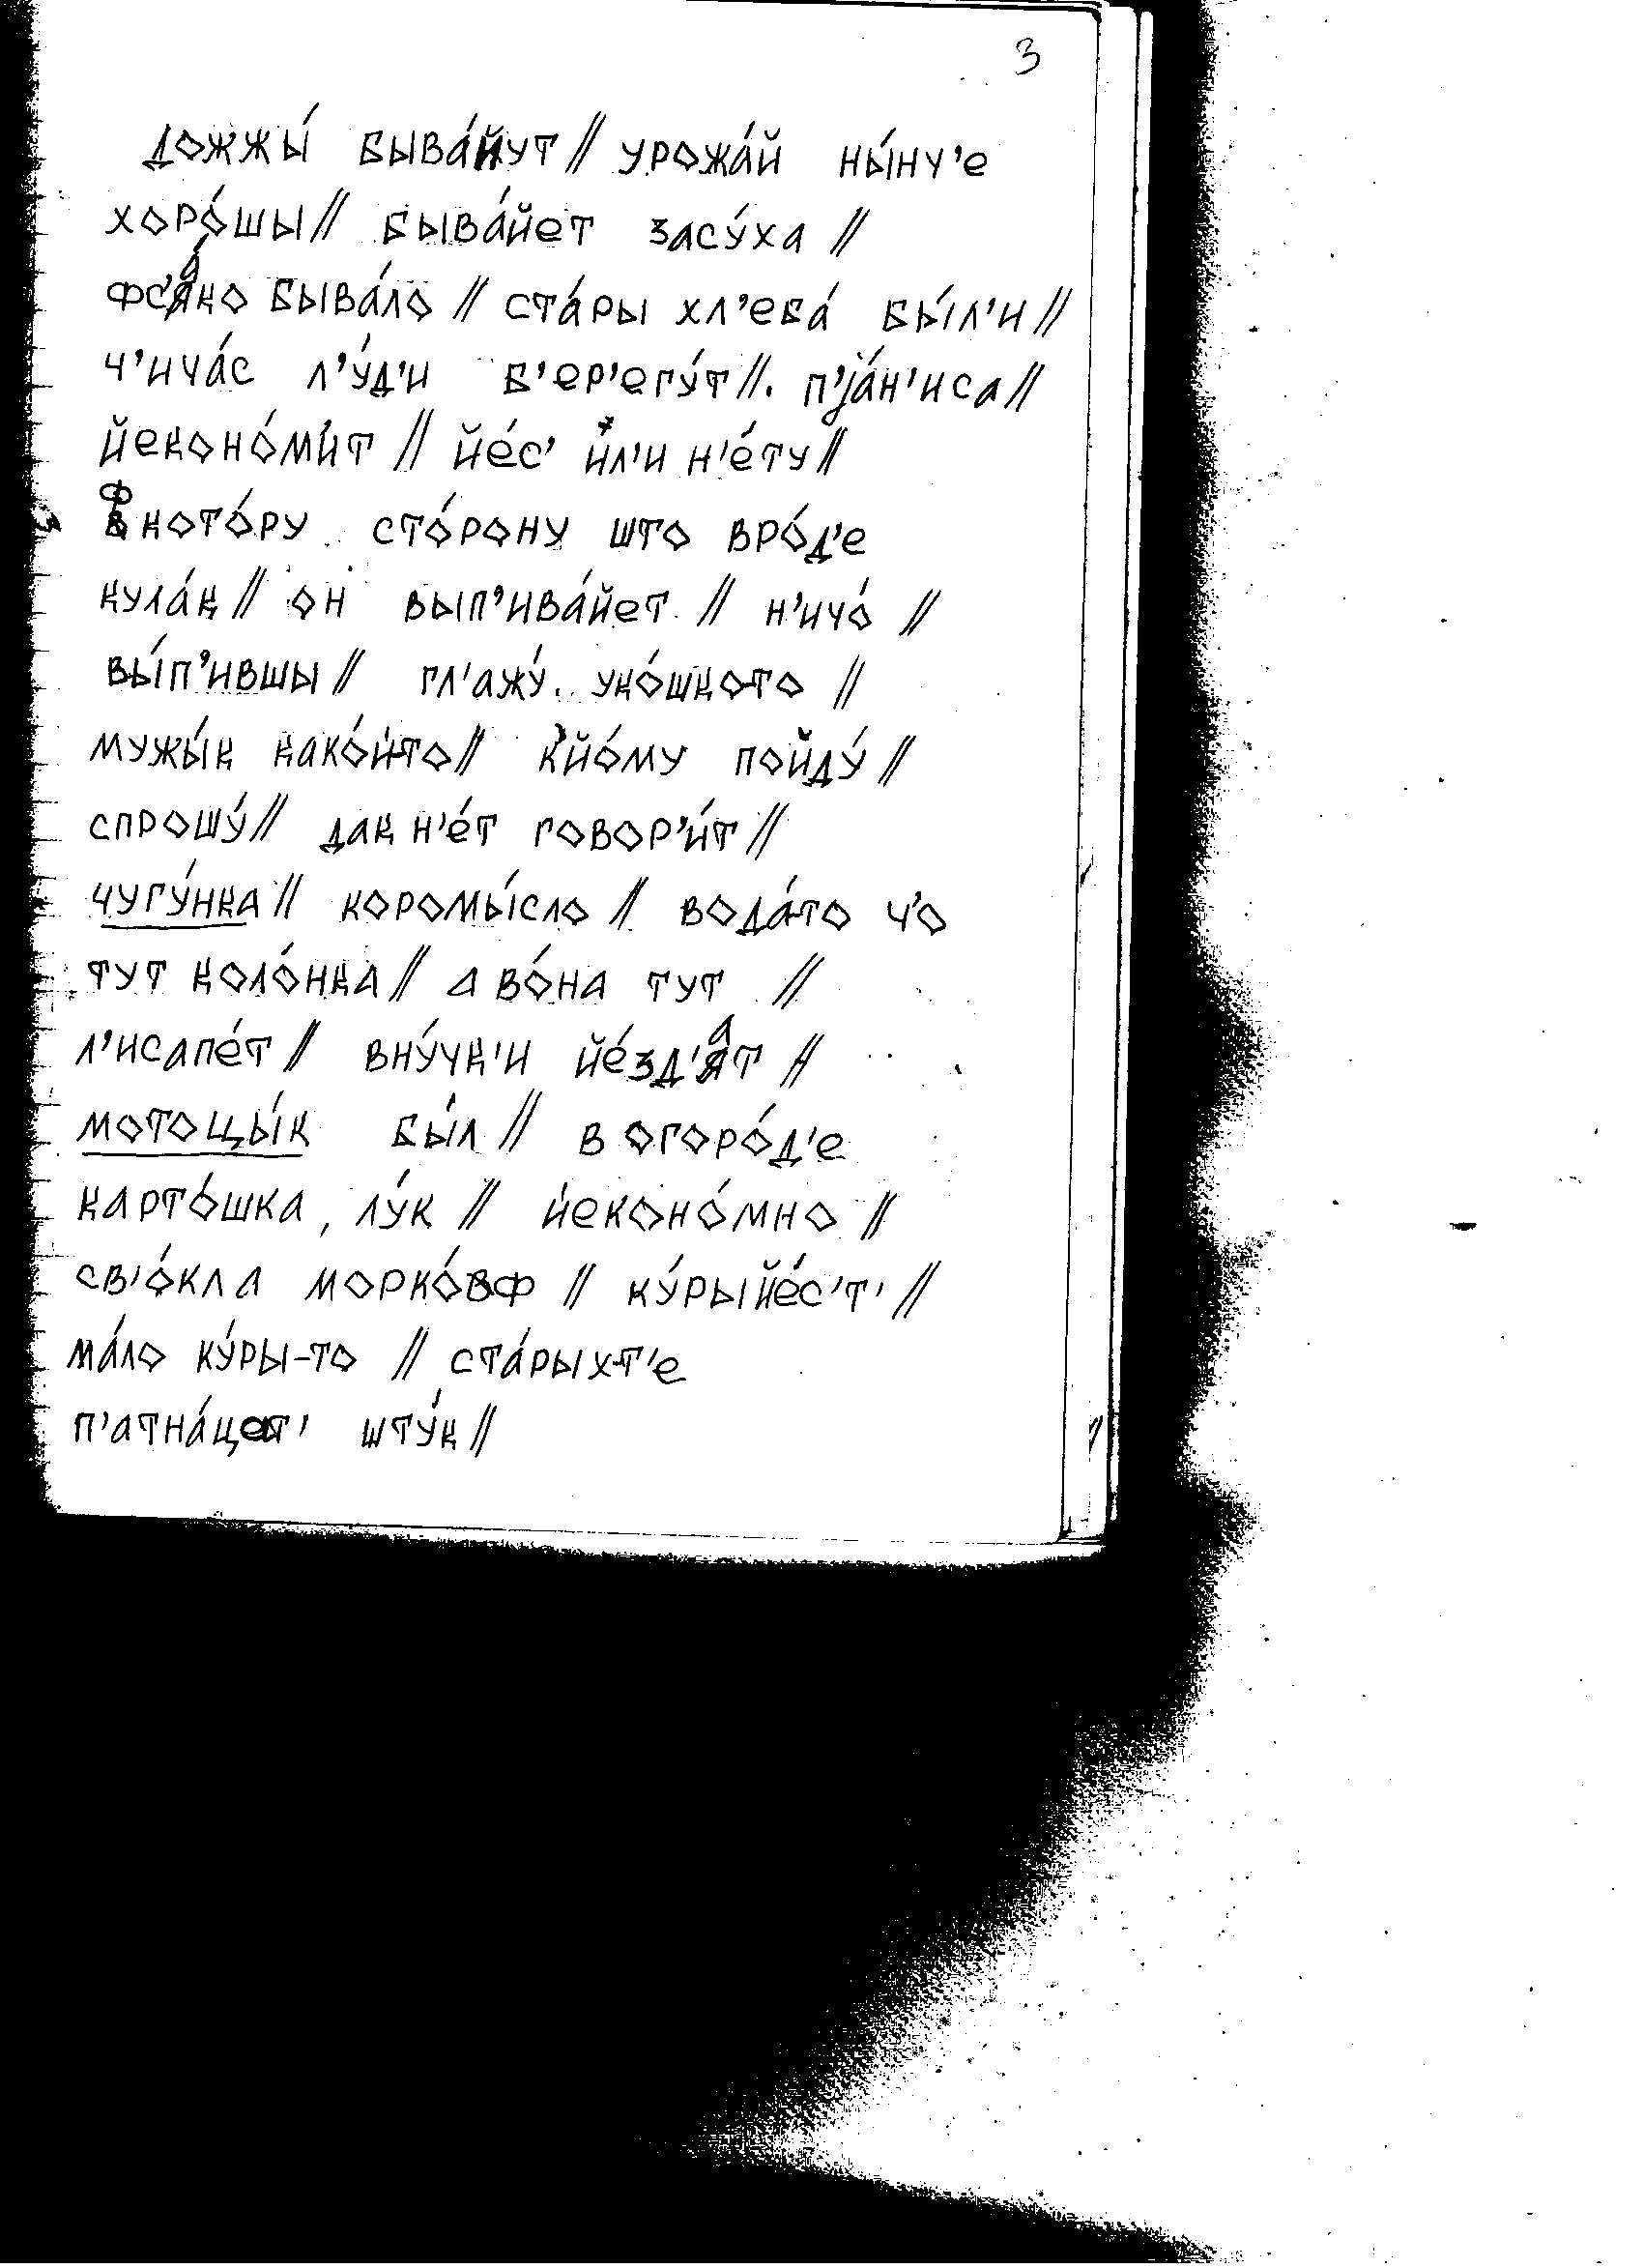 3
дожжы́ быва́йут // урожа́й ны́нч'е
хоро́шы // быва́йет засу́ха //
фс'а́ко быва́ло // ста́ры хл'еба́ бы́л'и //
ч'ича́с л'у́д'и б'ер'егу́т //. п'jа́н'иса //
йеконо́м'ит // йе́с' ил'и н'е́ту //
ф кото́ру сто́рону што вро́д'е
кула́к // он вып'ива́йет // н'ичо́ //
вы́п'ившы // гл'ажу́ уко́шкато //
мужы́к како́йто // к'йо́му пойду́ //
спрошу́ // дак н'е́т говор'и́т //
чугу́нка // коромы́сло // вода́-то ч'о
тут коло́нка // а во́на тут //
л'исапе́т // вну́чк'и йе́зд'ат //
мотоцы́к бы́л // в огоро́д'е
карто́шка, лу́к // йеконо́мно //
св'о́кла морко́вф // ку́ры йе́с'т' //
ма́ло ку́ры-то // ста́рыхт'е
п'атна́цат' шту́к //